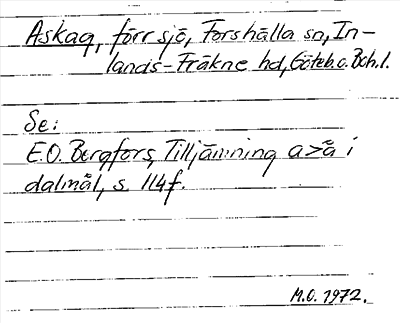 Askaq, förr sjö, Forshälla sn, In-
lands-Fräkne hd, Göteb. o. Boh. l.
Se:
E.O. Bergfors, Tilljämning a>å i
dalmål, s. 114f.
M.O. 1972.